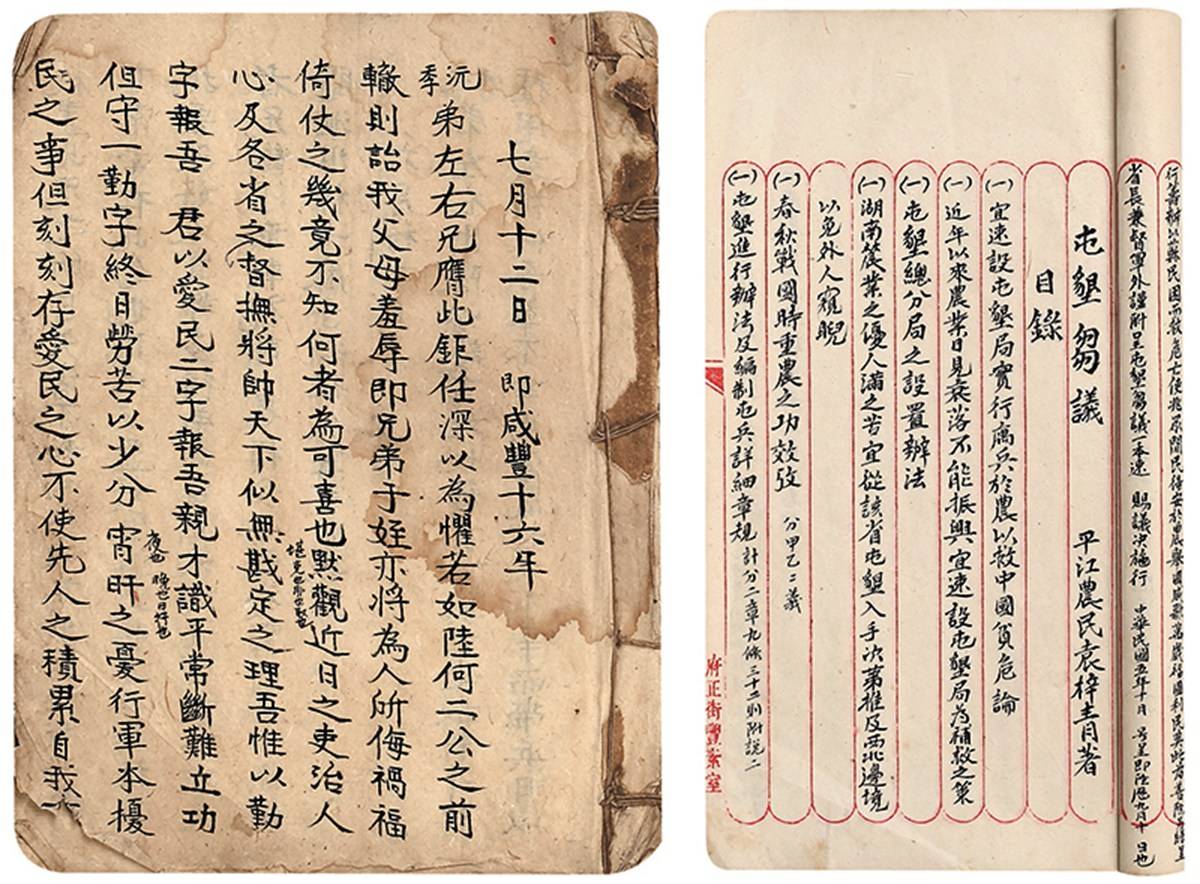 七月十二日 即咸豐十六年
沅季弟左右兄膺此鉅任深以為懼若如陸何二公之前
轍則詒我父母羞辱即兄弟子姪亦將為人所侮禍福
倚仗之幾竟不知何者為可喜也默觀近日之吏治人
心及各省之督撫將帥天下似無戡定之理吾惟以勤
字報吾 君以愛民二字報吾親才識平常斷難立功
夜也 晚也日旰也
但守一勤字終日勞苦以少分 宵旰之憂行軍本擾
民之事但刻刻存愛民之心不使先人之積累自我
行籌辦以蘇民困而救危亡使
省長兼督軍外謹附呈屯墾芻議一本速 賜議決施行 中華民國五年十月 號呈即陰歷九月十 日也
屯墾芻議 平江農民袁梓青著
目錄
(一)宜速設屯墾局實行寓兵於農以救中國貧危論
(一)近年以來農業日見衰落不能振興宜速設屯墾局為補救之策
(一)屯墾總分局之設置辦法
(一)湖南農業之優人滿之苦宜從該省屯墾入手次第推及西北邊境
以免外人窺睨
(一)春秋戰國時重農之功效攷 分甲乙二義
(一)屯墾進行辦法及編制屯兵詳細章規 計分二章九條三十二則附說二
府正街豐泰室